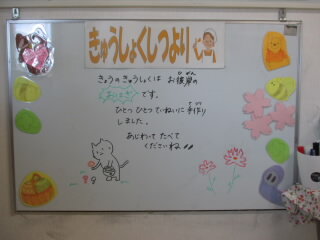 きゅうしょくしつより
きょうのきゅうしょくは お彼岸の
おはぎ です。
ひとつ ひとつ ていねいに 手作り
しました。
あじわって たべて
くださいね